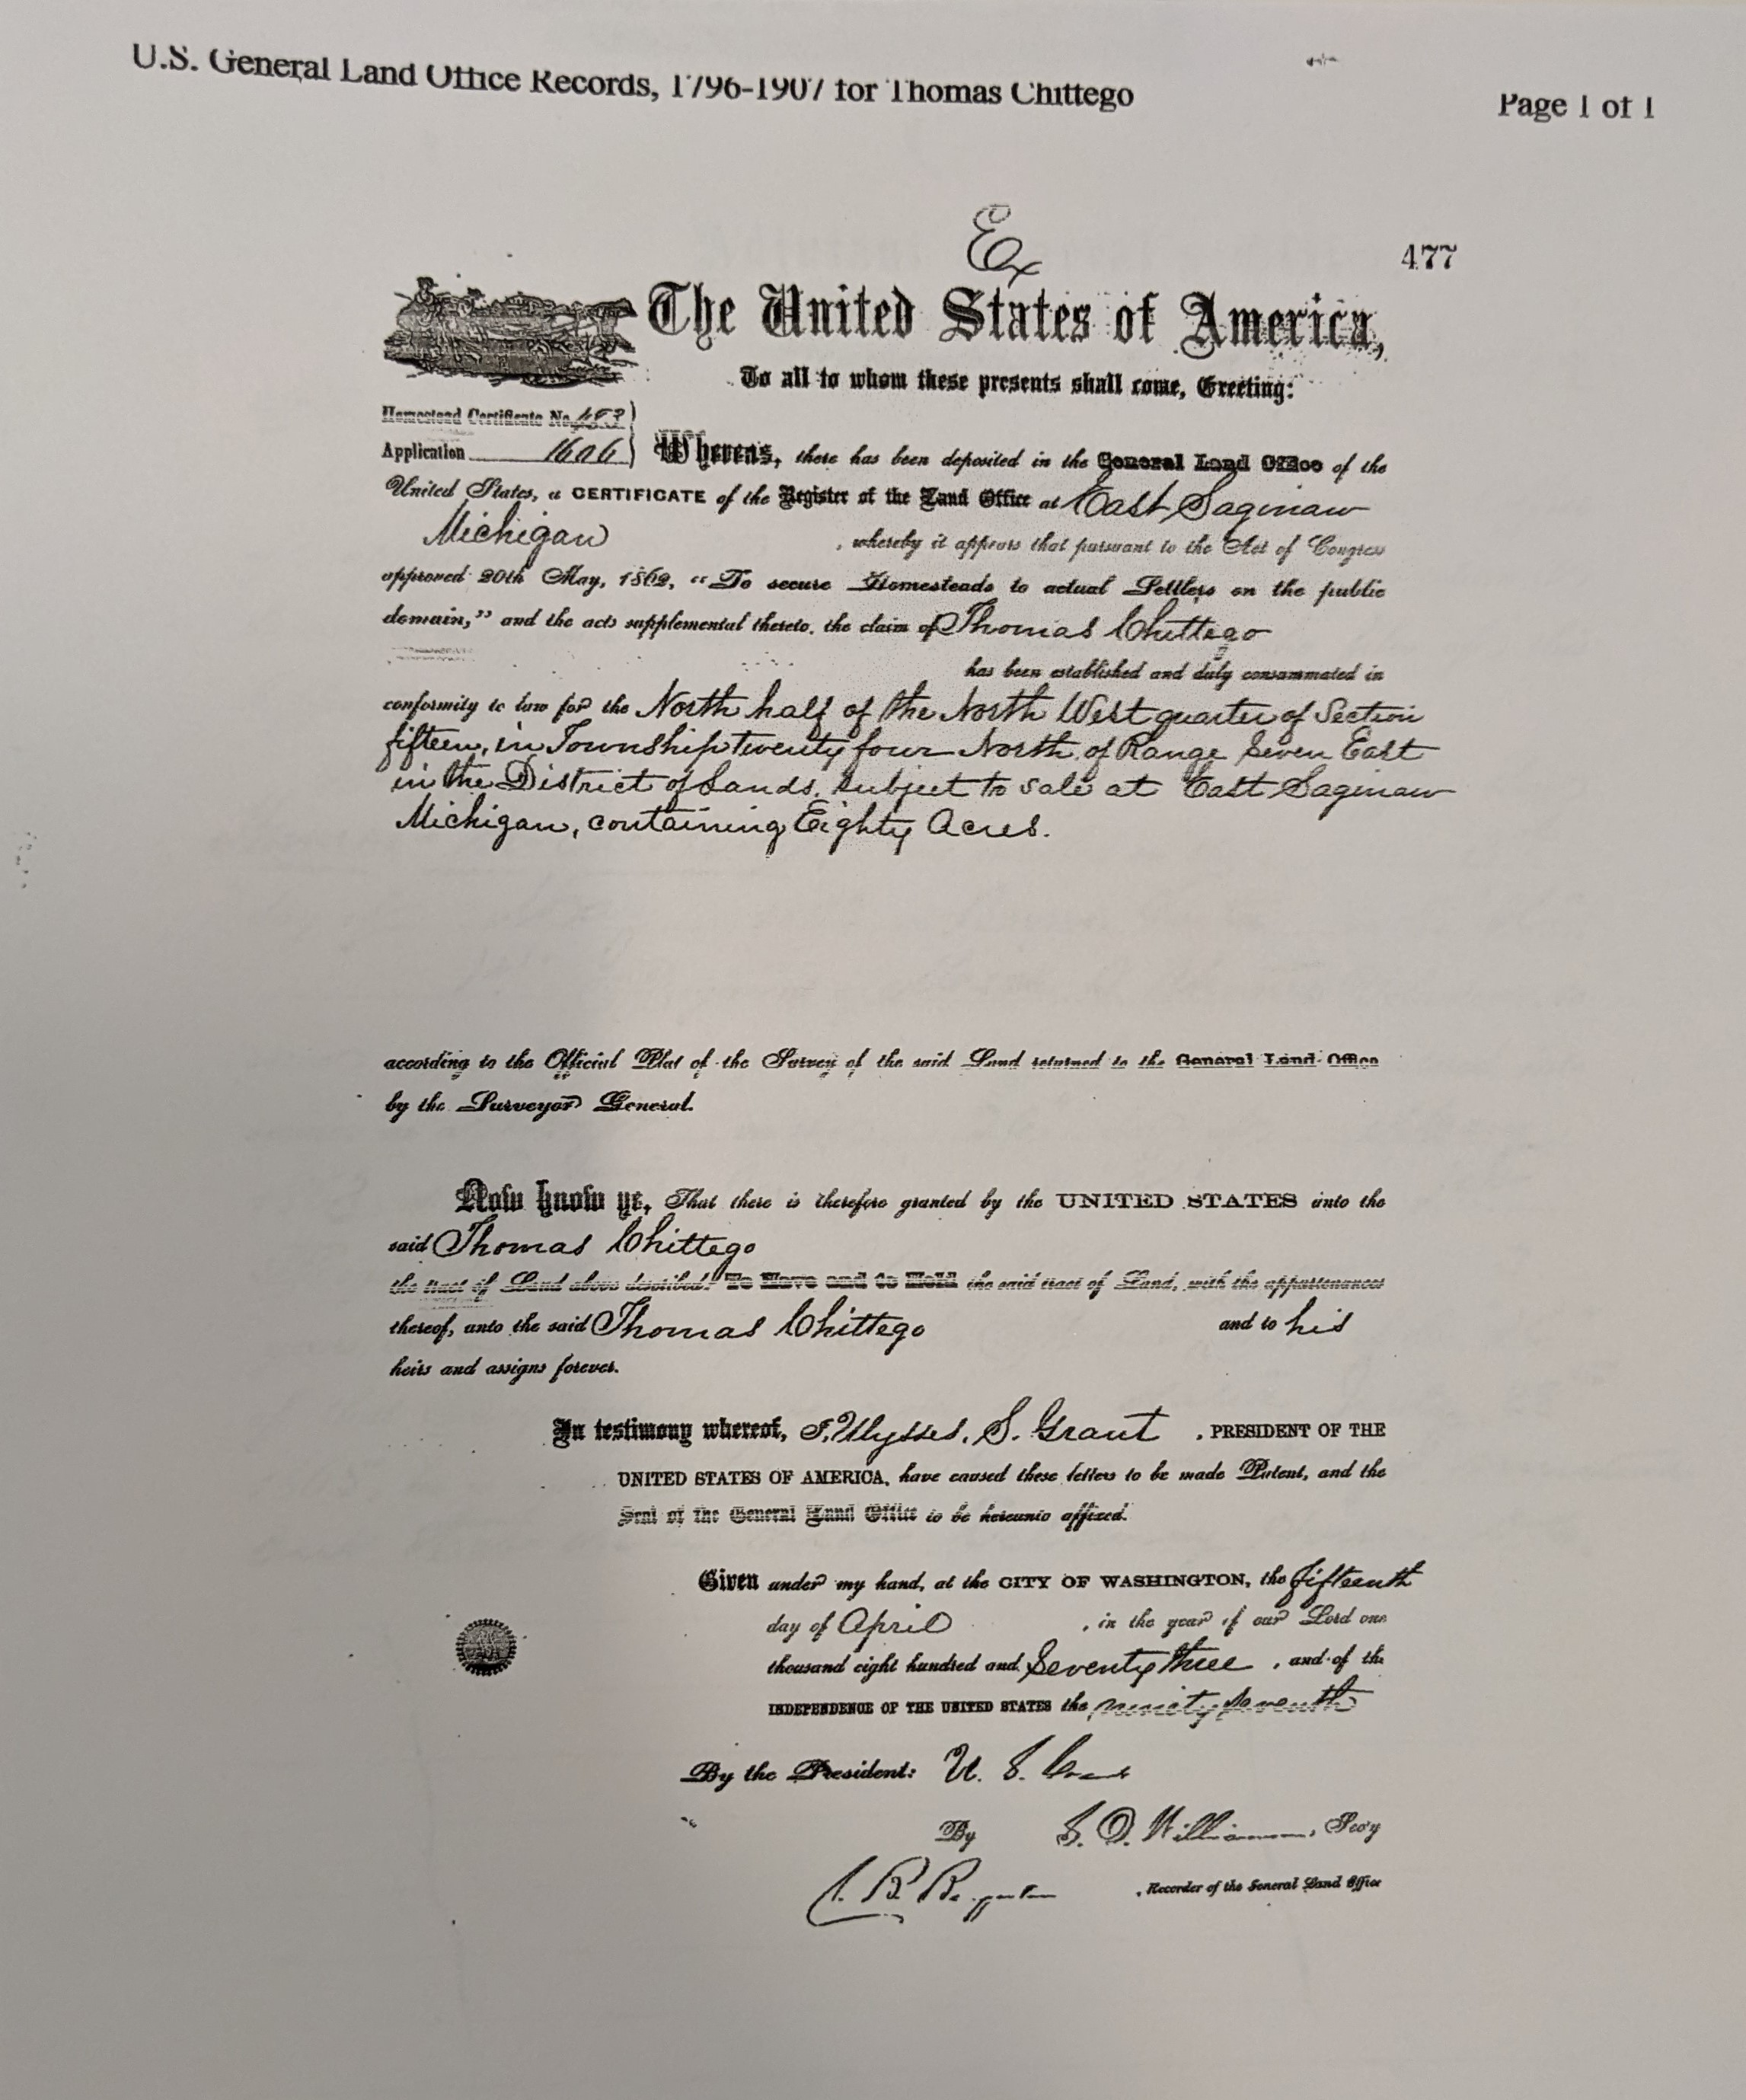 U.S. General Land Office Records, 1796-1907 for Thomas Chittego
Page 1 of 1
Ex
477
The United States of America,
To all to whom these presents shall come, Greeting:
Homestead Certificate No.
Application 1606
Whereas, there has been deposited in the General Land Office of the
United States, a CERTIFICATE of the Register of the Land Office at East Saginaw
Michigan , whereby it appears that pursuant to the Act of Congress
approved 20th May, 1862, “To secure Homesteads to actual Settlers on the public
domain,” and the acts supplemental thereto, the claim of Thomas Chittego
has been established and duly consummated in
conformity to law for the North half of the North West quarter of Section
fifteen, in Township twenty four North of Range Seven East
in the District of Lands, subject to sale at East Saginaw
Michigan, containing Eighty Acres.
according to the Official Plat of the Survey of the said Land returned to the General Land Office
by the Surveyor General.
Now know ye, That there is therefore granted by the UNITED STATES unto the
said Thomas Chittego
the tract of Land above described: To Have and to Hold the said tract of Land, with the appurtenances
thereof, unto the said Thomas Chittego and to his
heirs and assigns forever.
In testimony whereof, I, Ulysses. S. Grant , PRESIDENT OF THE
UNITED STATES OF AMERICA, have caused these letters to be made Patent, and the
Seal of the General Land Office to be hereunto affixed.
Given under my hand, at the CITY OF WASHINGTON, the fifteenth
day of April , in the year of our Lord one
thousand eight hundred and Seventy three , and of the
INDEPENDENCE OF THE UNITED STATES the ninety seventh
By the President: U. S. Grant
By S. D. Williamson, Sec'y
, Recorder of the General Land Office